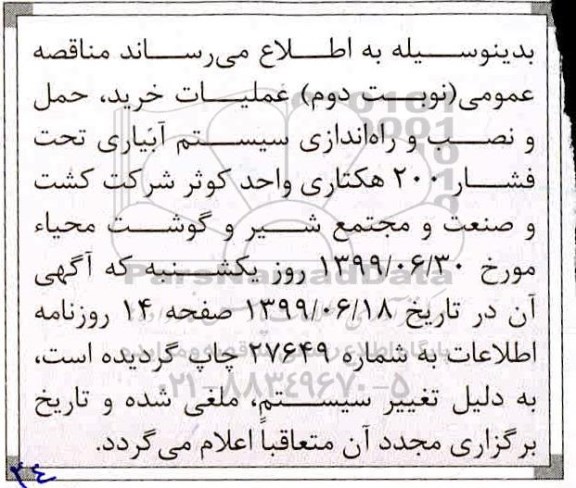 بدینوسیله به اطلاع می‌رساند مناقصه
عمومی(نوبت دوم) عملیات خرید، حمل
و نصب و راه‌اندازی سیستم آبیاری تحت
فشار ۲۰۰ هکتاری واحد کوثر شرکت کشت
و صنعت و مجتمع شیر و گوشت محیاء
مورخ ۱۳۹۹/۰۶/۳۰ روز یکشنبه که آگهی
آن در تاریخ ۱۳۹۹/۰۶/۱۸ صفحه ۱۴ روزنامه
اطلاعات به شماره ۲۷۶۴۹ چاپ گردیده است،
به دلیل تغییر سیستم، ملغی شده و تاریخ
برگزاری مجدد آن متعاقباً اعلام می‌گردد.
ParsNamadData
۰۲۱-۸۸۳۴۹۶۷۰-۵
۳۴